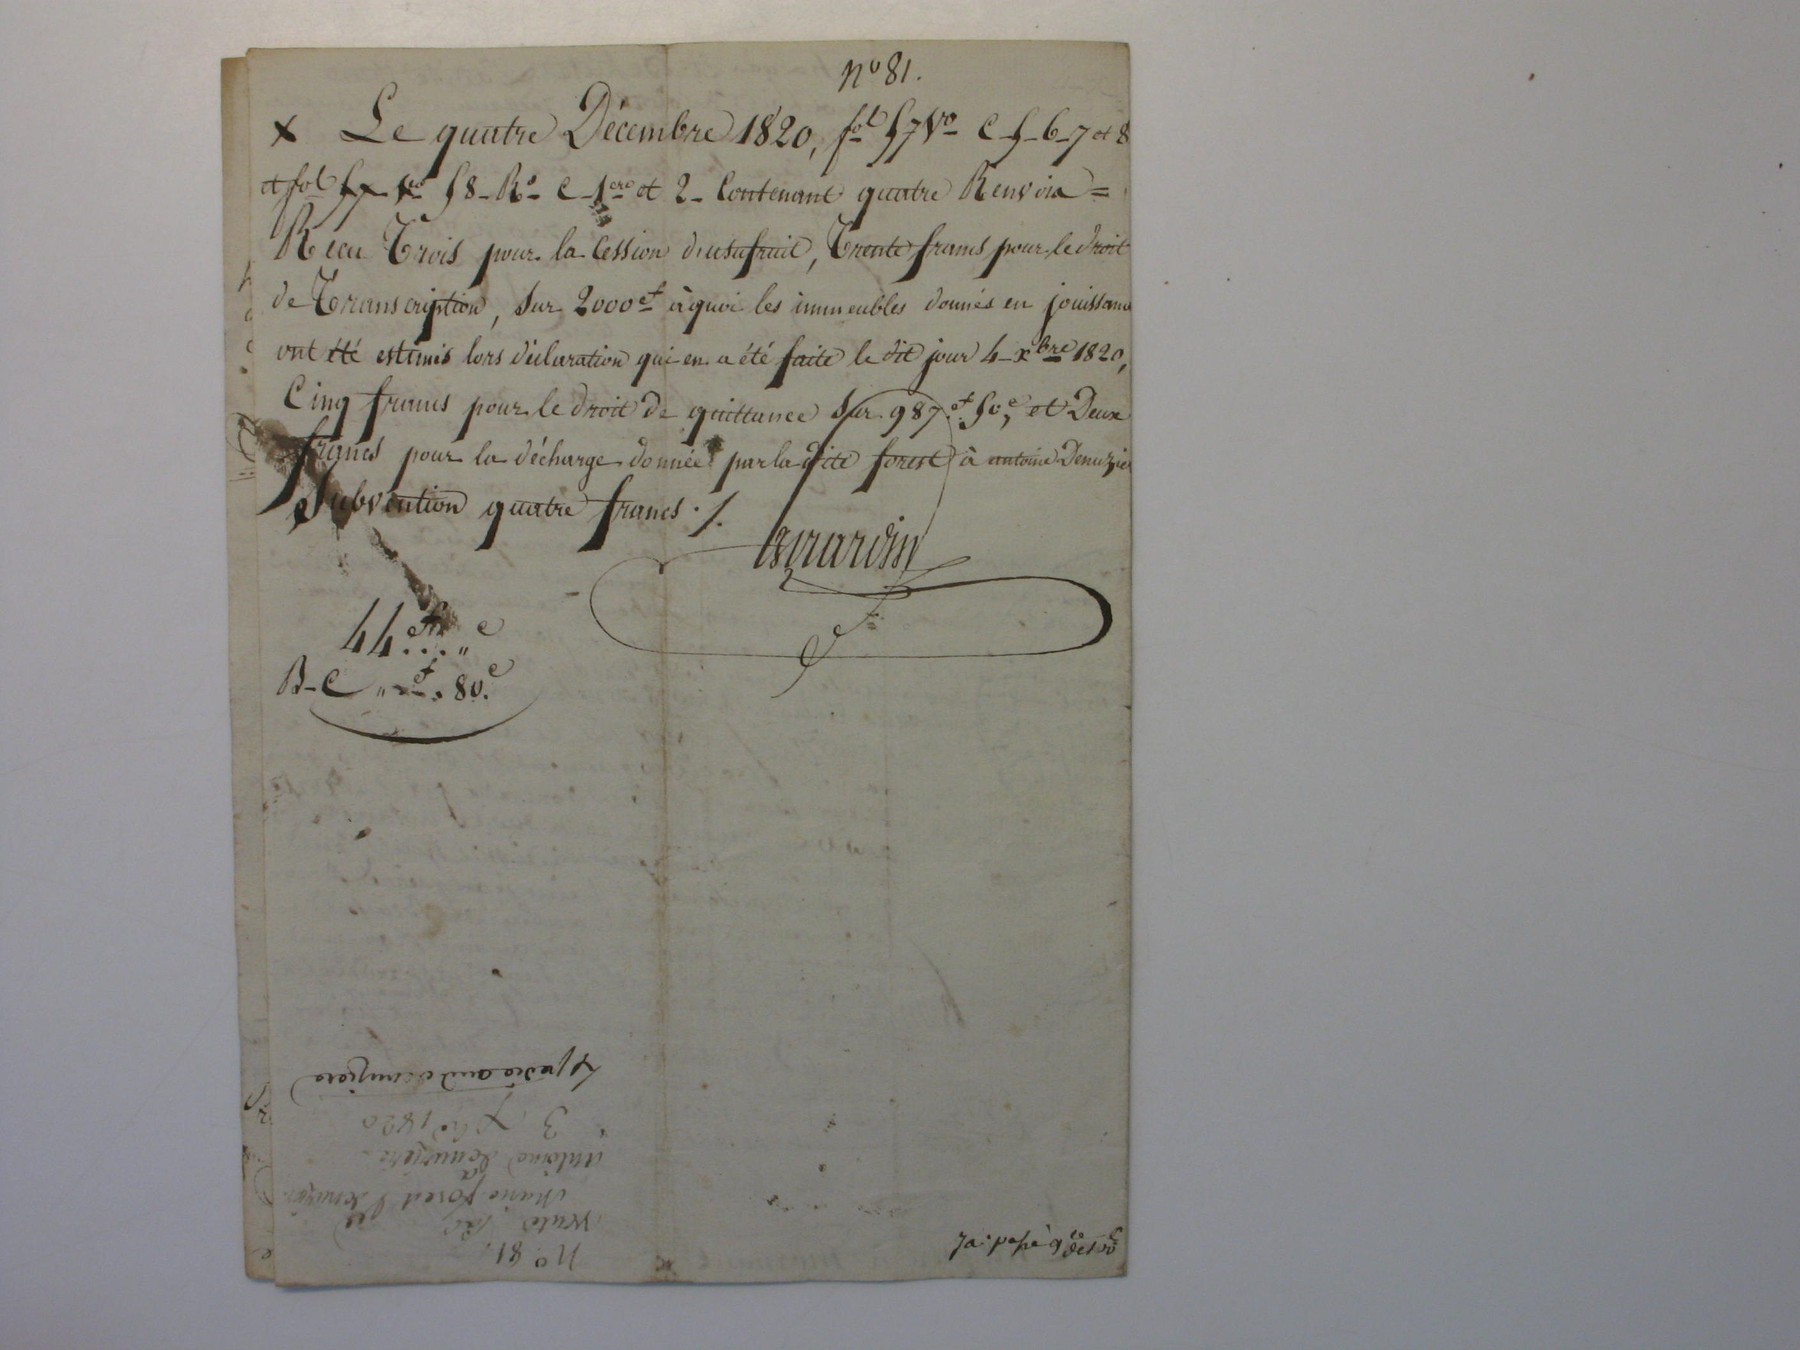 N° 81.
x Le quatre Décembre 1820, fol 57 Vo C 5-6-7 et 8
et fol 58 Ro C 1ere et 2 Contenant quatre Renvois =
Recu Trois pour la Cession d'usufruit, Trente francs pour le droit
de Transcription, Sur 2000 f àquoi les immeubles donnés en jouissance
ont été estimés lors déclaration qui en a été faite le dit jour 4 xbre 1820,
Cinq francs pour le droit de quittance Sur 987 f 50 c, et Deux
francs pour la décharge donnée par la dite forest à antoine Denuzier
Subvention quatre francs ./.
Girardin
44 f .. " c
B-C " f . 80 c
N° 81.
vente
marie forest
à
antoine
3 1820